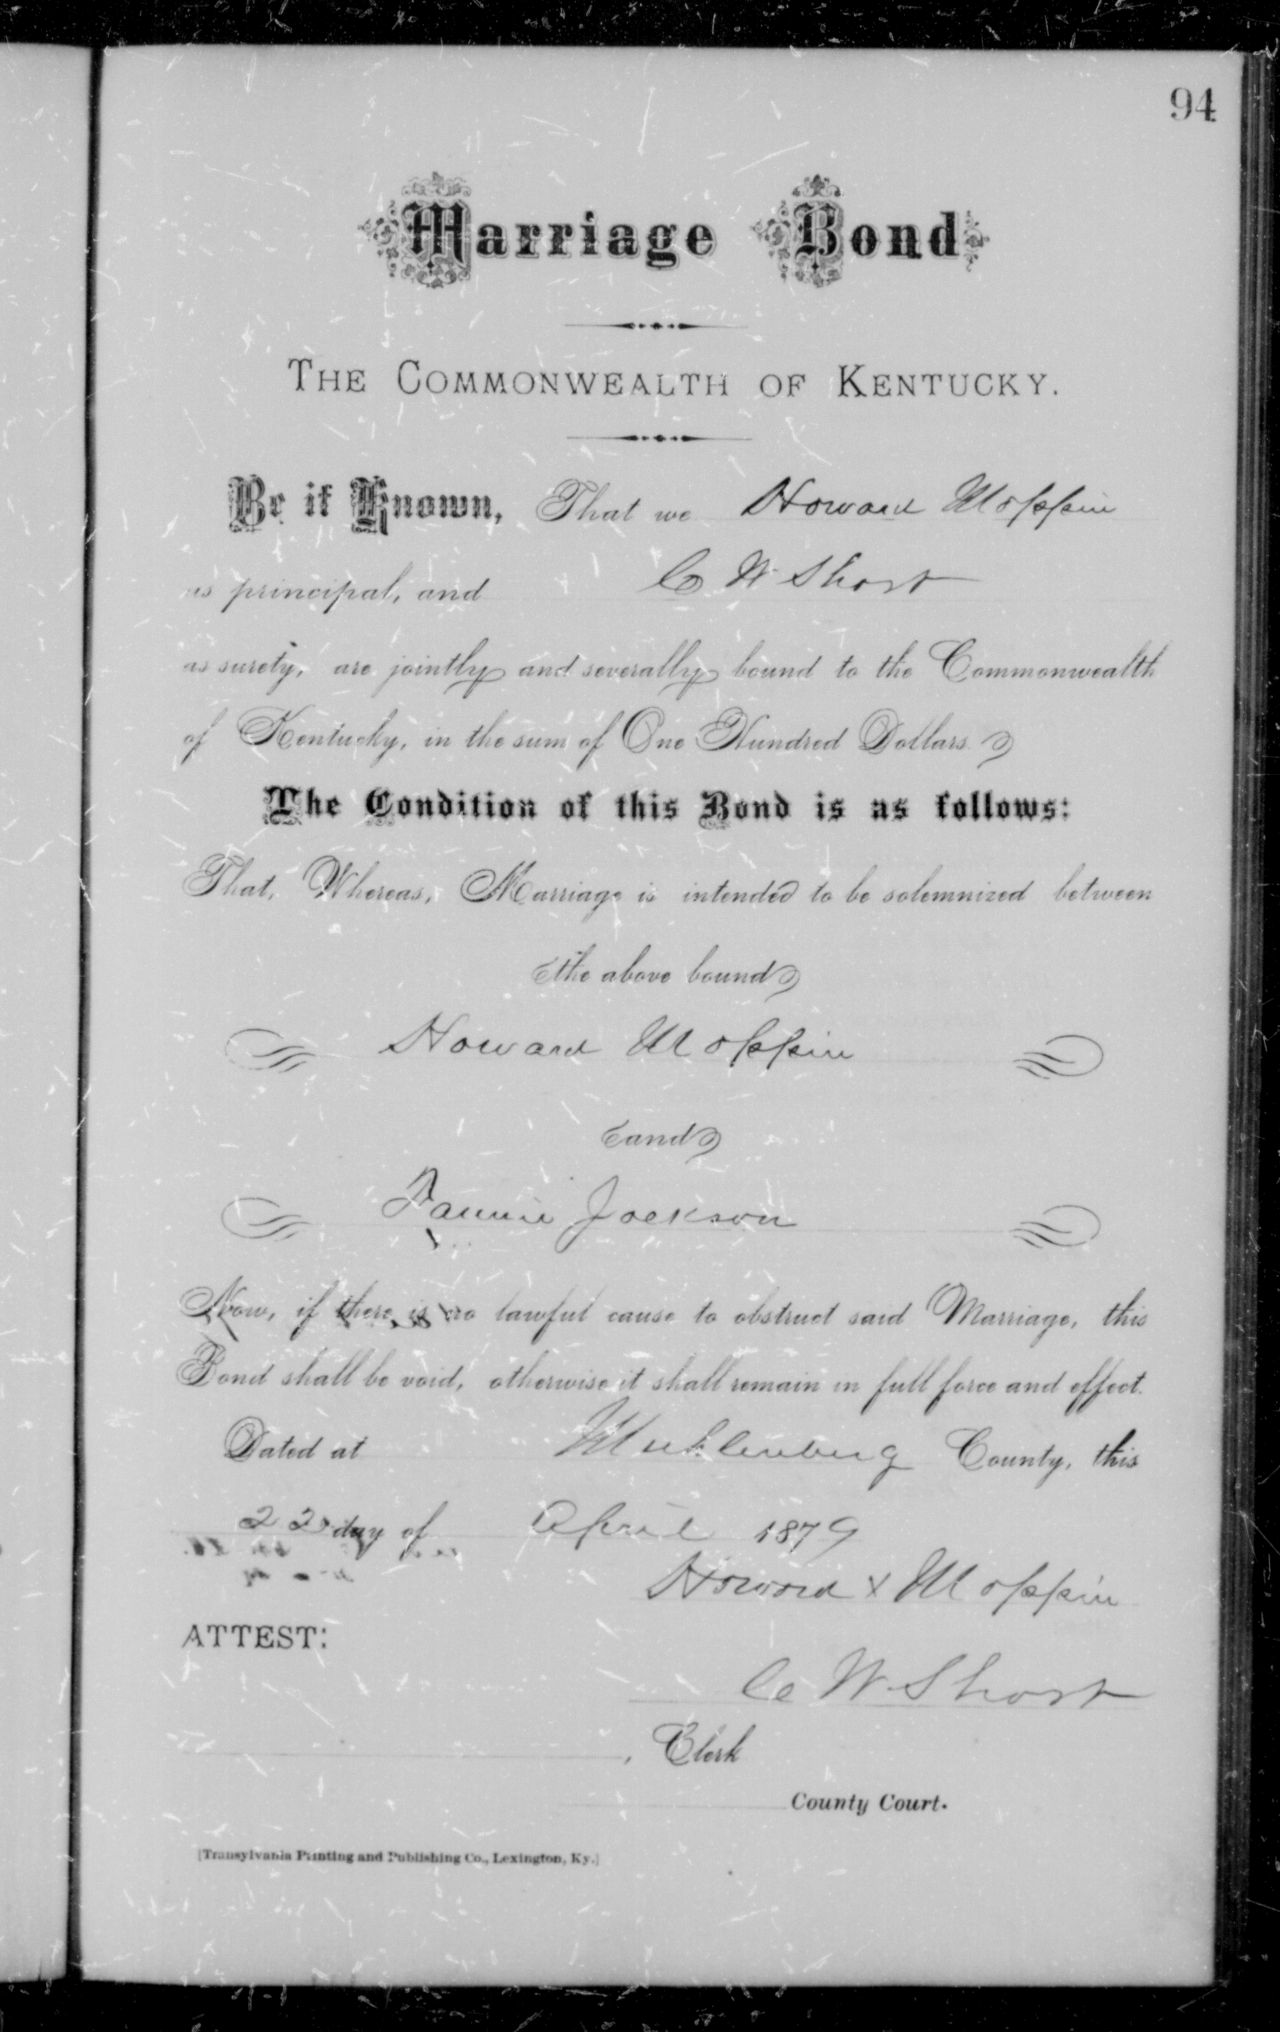 94
Marriage Bond
THE COMMONWEALTH OF KENTUCKY.
Be it Known, That we Howard Moppin
as principal, and C W Short
as surety, are jointly and severally bound to the Commonwealth
of Kentucky, in the sum of One Hundred Dollars.
The Condition of this Bond is as follows:
That, Whereas, Marriage is intended to be solemnized between
the above bound
Howard Moppin
and
Fannie Jackson
Now, if there is no lawful cause to obstruct said Marriage, this
Bond shall be void, otherwise it shall remain in full force and effect.
Dated at Muhlenberg County, this
22 day of April 1879
Howard x Moppin
ATTEST:
C W Short
, Clerk
County Court.
[Transylvania Printing and Publishing Co., Lexington, Ky.]